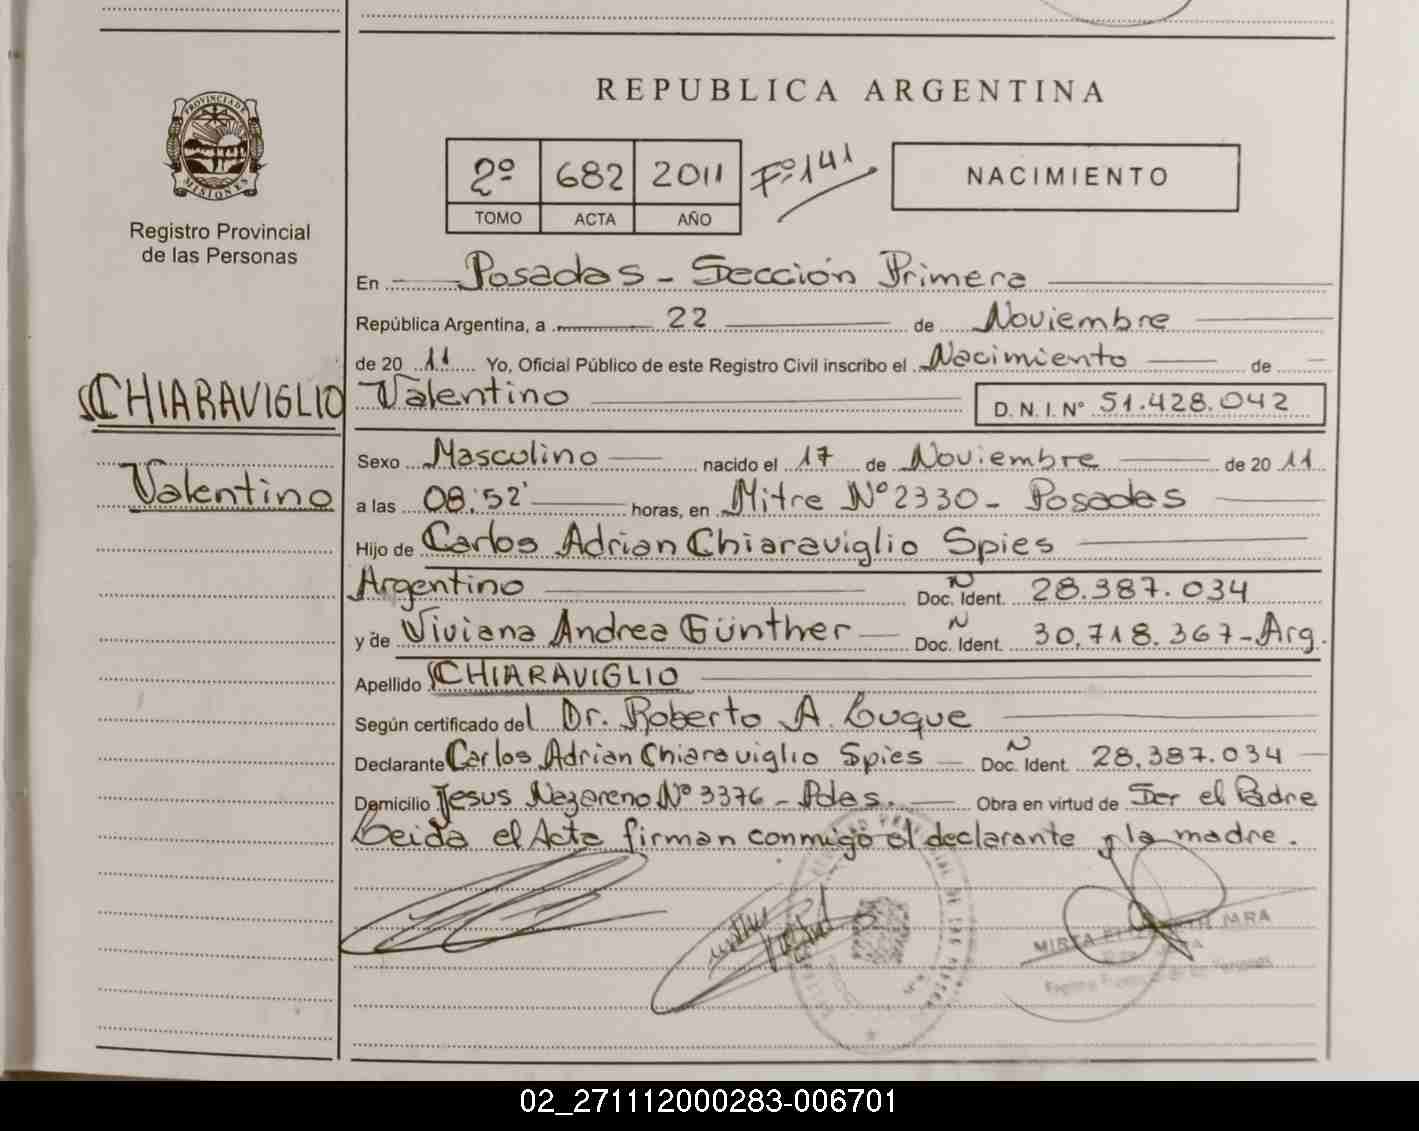 REPUBLICA ARGENTINA
PROVINCIA DE
MISIONES
Registro Provincial
de las Personas
2º 682 2011 Fº 141
TOMO ACTA AÑO
NACIMIENTO
En Posadas - Sección Primera
República Argentina, a 22 de Noviembre
de 20 11 Yo, Oficial Público de este Registro Civil inscribo el Nacimiento de
Valentino D. N. I. Nº 51.428.042
CHIARAVIGLIO
Valentino
Sexo Masculino nacido el 17 de Noviembre de 20 11
a las 08:52' horas, en Mitre Nº 2330 - Posadas
Hijo de Carlos Adrian Chiaraviglio Spies
Argentino Doc. Ident. N 28.387.034
y de Viviana Andrea Günther Doc. Ident. N 30.718.367 - Arg.
Apellido CHIARAVIGLIO
Según certificado del Dr. Roberto A. Luque
Declarante Carlos Adrian Chiaraviglio Spies Doc. Ident. N 28.387.034
Domicilio Jesus Nazareno Nº 3376 - Pdas. Obra en virtud de Ser el Padre
Leida el Acta firman conmigo el declarante y la madre.
MIRTA JARA
02_271112000283-006701